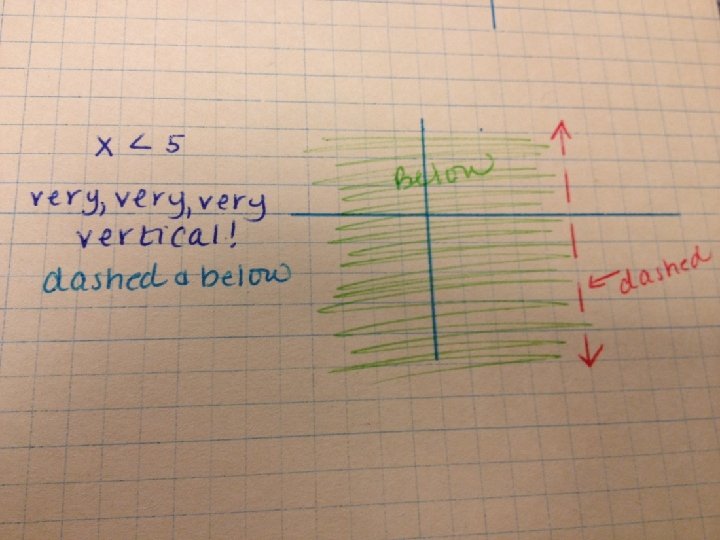 x < 5
very, very, very
vertical!
dashed & below
Below
dashed